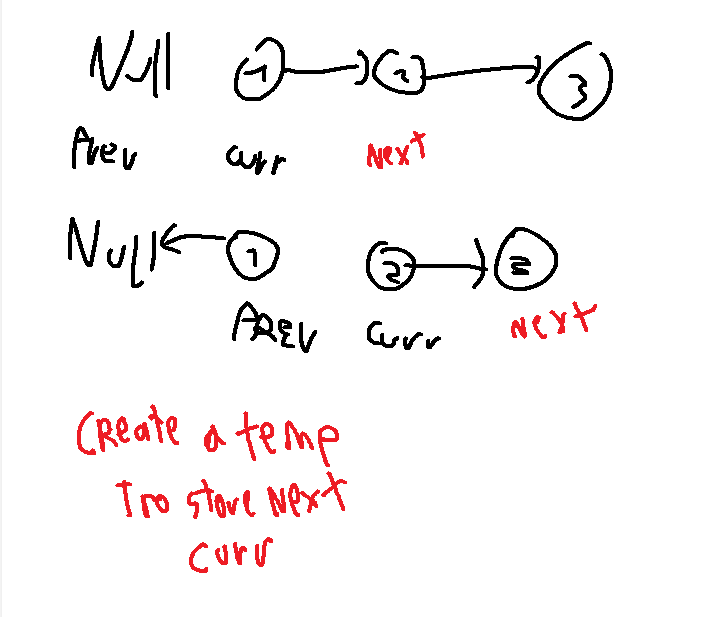 Null 1 2 3
Prev curr Next
Null 1 2 3
PREV curr Next
Create a temp
Tro store Next
curr